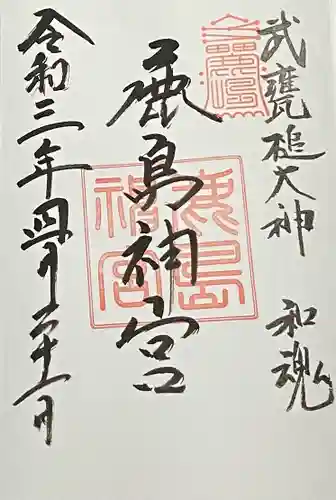 武甕槌大神 和魂
鹿島神宮
令和三年四月二十一日